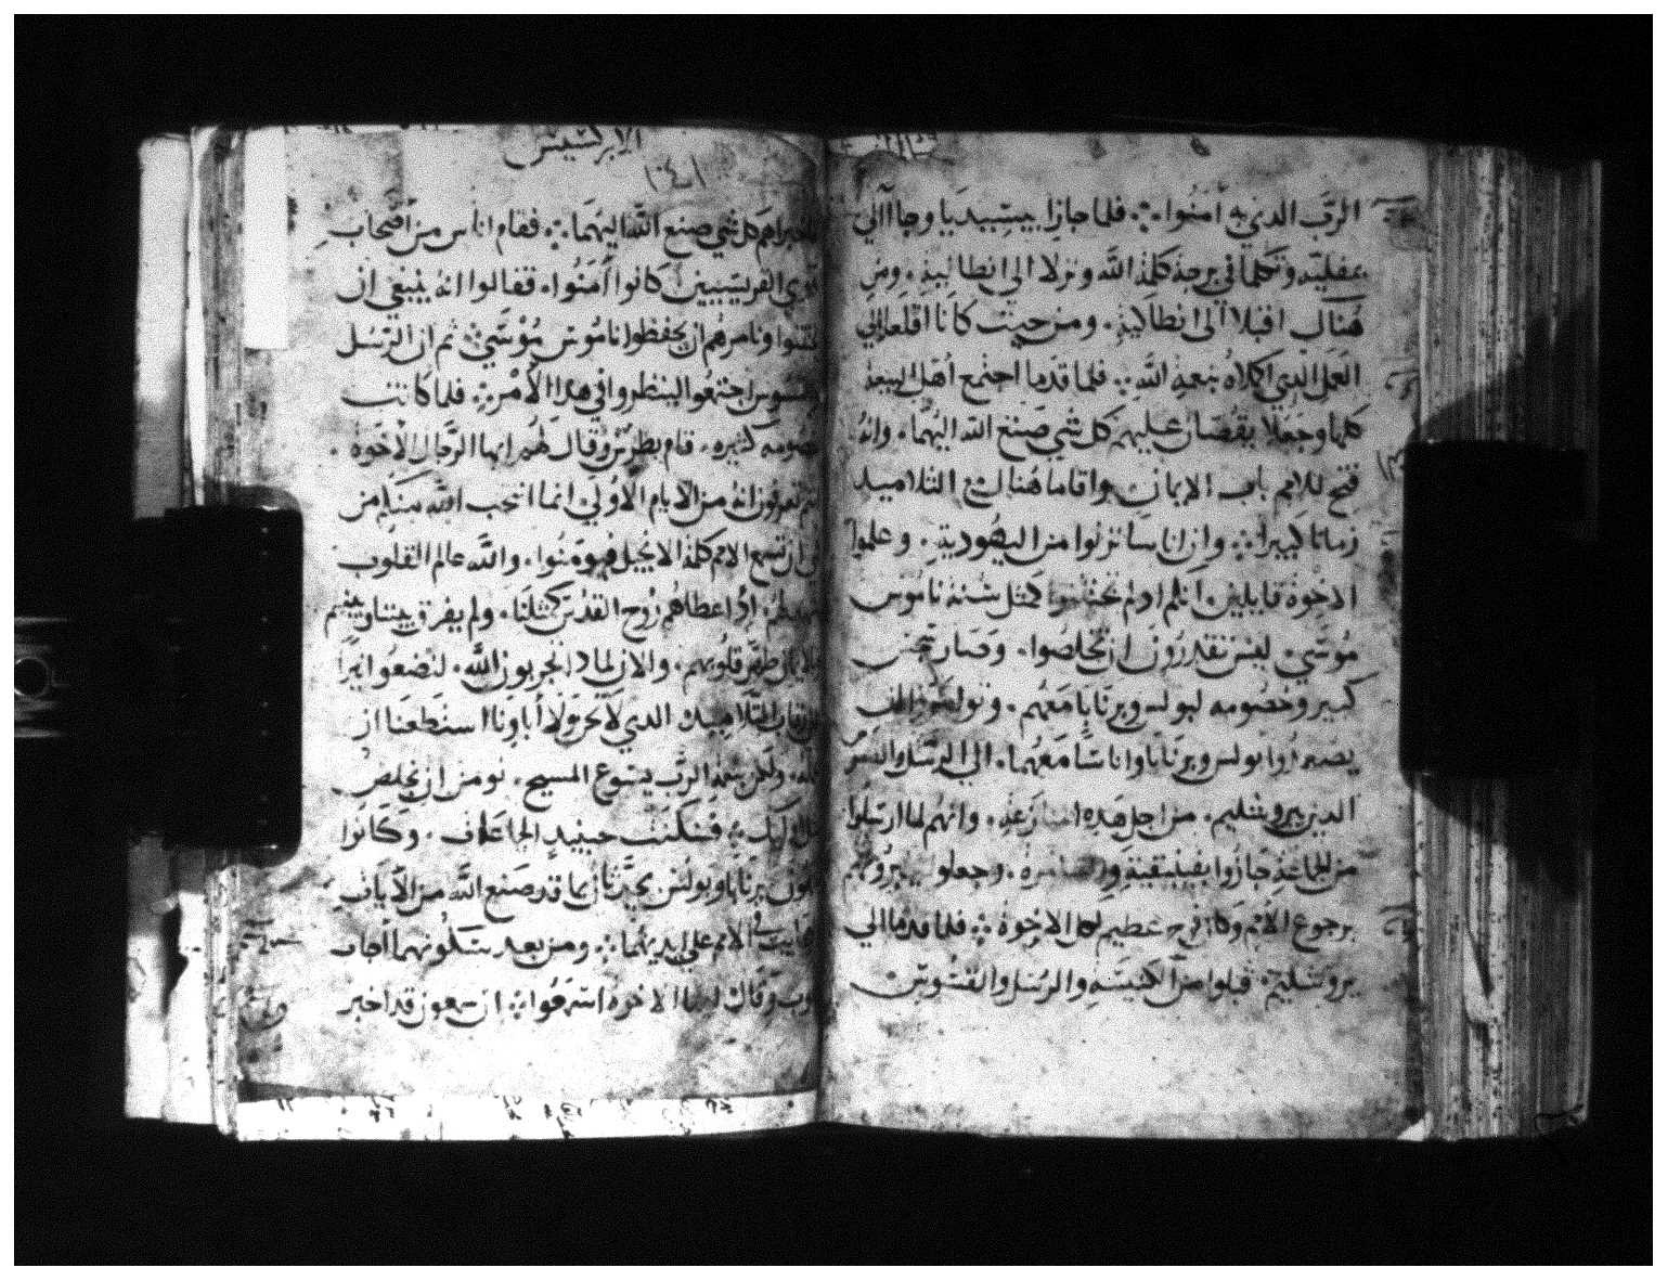 الرَّب الدي به أمنوا ۞ فلما جازا بيسيديا وجاآ الي
بمفليه وتكلما في برجة كلمة اللَّه ونزلا الي انطاليه ٠ ومن
هناك اقبلا الي انطاكية ٠ ومن حيث كانا اقلعا الي
العمل الدي اكملاه بنعمة اللَّه ۞ فلما قدما اجتمع أهل البيعة
كلها وجعلا يقصان عليهم كل شي صنع اللَّه اليهما ٠ وانهُ
فتح للامم باب الايمان واقاما هُناك مع التلاميد
زمانا كبيرا ۞ وان اناسا نزلوا من اليهودية ٠ وعلموا
الاخوة قايلين انكم ادا لم تختتنوا كمثل سُنة ناموس
مُوسَي ليس تقدرُون ان تخلصوا ٠ وصار سجس
كبير وخصومه لبولس وبرنابا معهم ٠
يصعدُوا بولس وبرنابا واناسًا معهما ٠ الي الرسل والقس
الدين بيروشليم ٠ من اجل هده ٠ وانهم لما ارسلوا
من الجماعة جازوا بفينيقية والسامره ٠ وجعلو يخبروهم
برجوع الأمم وكان فرح عظيم لكل الاخوة ۞ فلما قدما الي
يروشليم ٠ قبلوا من الكنيسة والرسل والقسُوس
الابركسيس
فاخبراهم كل شي صنع اللَّه اليهما ۞ فقام اناس من أصحاب
القريسيين كانوا أمنوا ٠ فقالوا انه ينبغي ان
يختتنوا ونامرهم ان يحفظوا ناموس مُوسَي ۞ ثم ان الرسُل
والقسوس اجتمعوا لينظروا في هدا الأمر ۞ فلما كانت
خصومه كثيره ٠ قام بطرس وقال لهُم ايها الرجال الاخوة ٠
انتم تعرفون انهُ من الأيام الأولي انما انتخب اللَّه منكم من
ان تسمع الامم كلمة الانجيل فيومنوا ٠ واللَّه عالم القلوب
اد اعطاهُم رُوح القدُس كمثلنا ٠ ولم يفرق بيننا وبينهم
طهر قلوبهم ٠ والان لمادا تجربون اللَّه ٠ لتضعوا نيرًا
التلاميد الدي لا نحن ولا أباونا استطعنا ان
ولكن بنعمة الرَّب يسوع المسيح ٠ نومن ان نخلص
مثل اوليك ۞ فسكتت حينيد الجماعات ٠ وكانوا
برنابا وبولس يحدثان بما قد صنع اللَّه من الآيات
في الأمم علي ايديهما ۞ ومن بعد سكوتهما أجاب
يعقوب وقال الاخوه اسمعوا ۞ ان سمعون قد اخبر